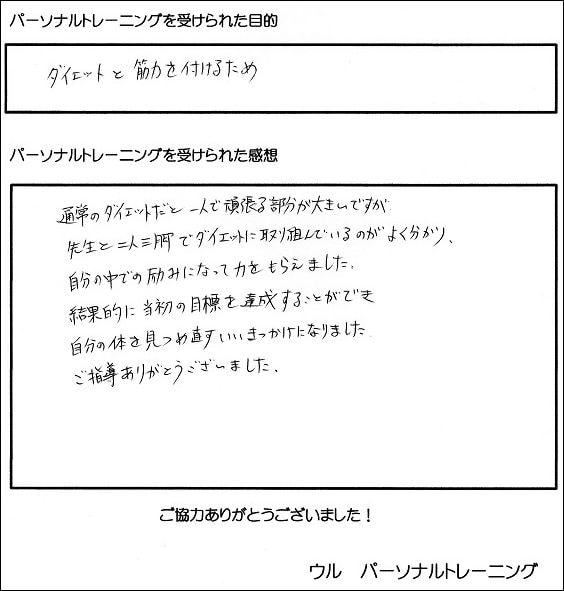 パーソナルトレーニングを受けられた目的
ダイエットと筋力を付けるため
パーソナルトレーニングを受けられた感想
通常のダイエットだと一人で頑張る部分が大きいですが
先生と二人三脚でダイエットに取り組んでいるのがよく分かり、
自分の中での励みになって力をもらえました。
結果的に当初の目標を達成することができ
自分の体を見つめ直すいいきっかけになりました
ご指導ありがとうございました。
ご協力ありがとうございました！
ウル　パーソナルトレーニング